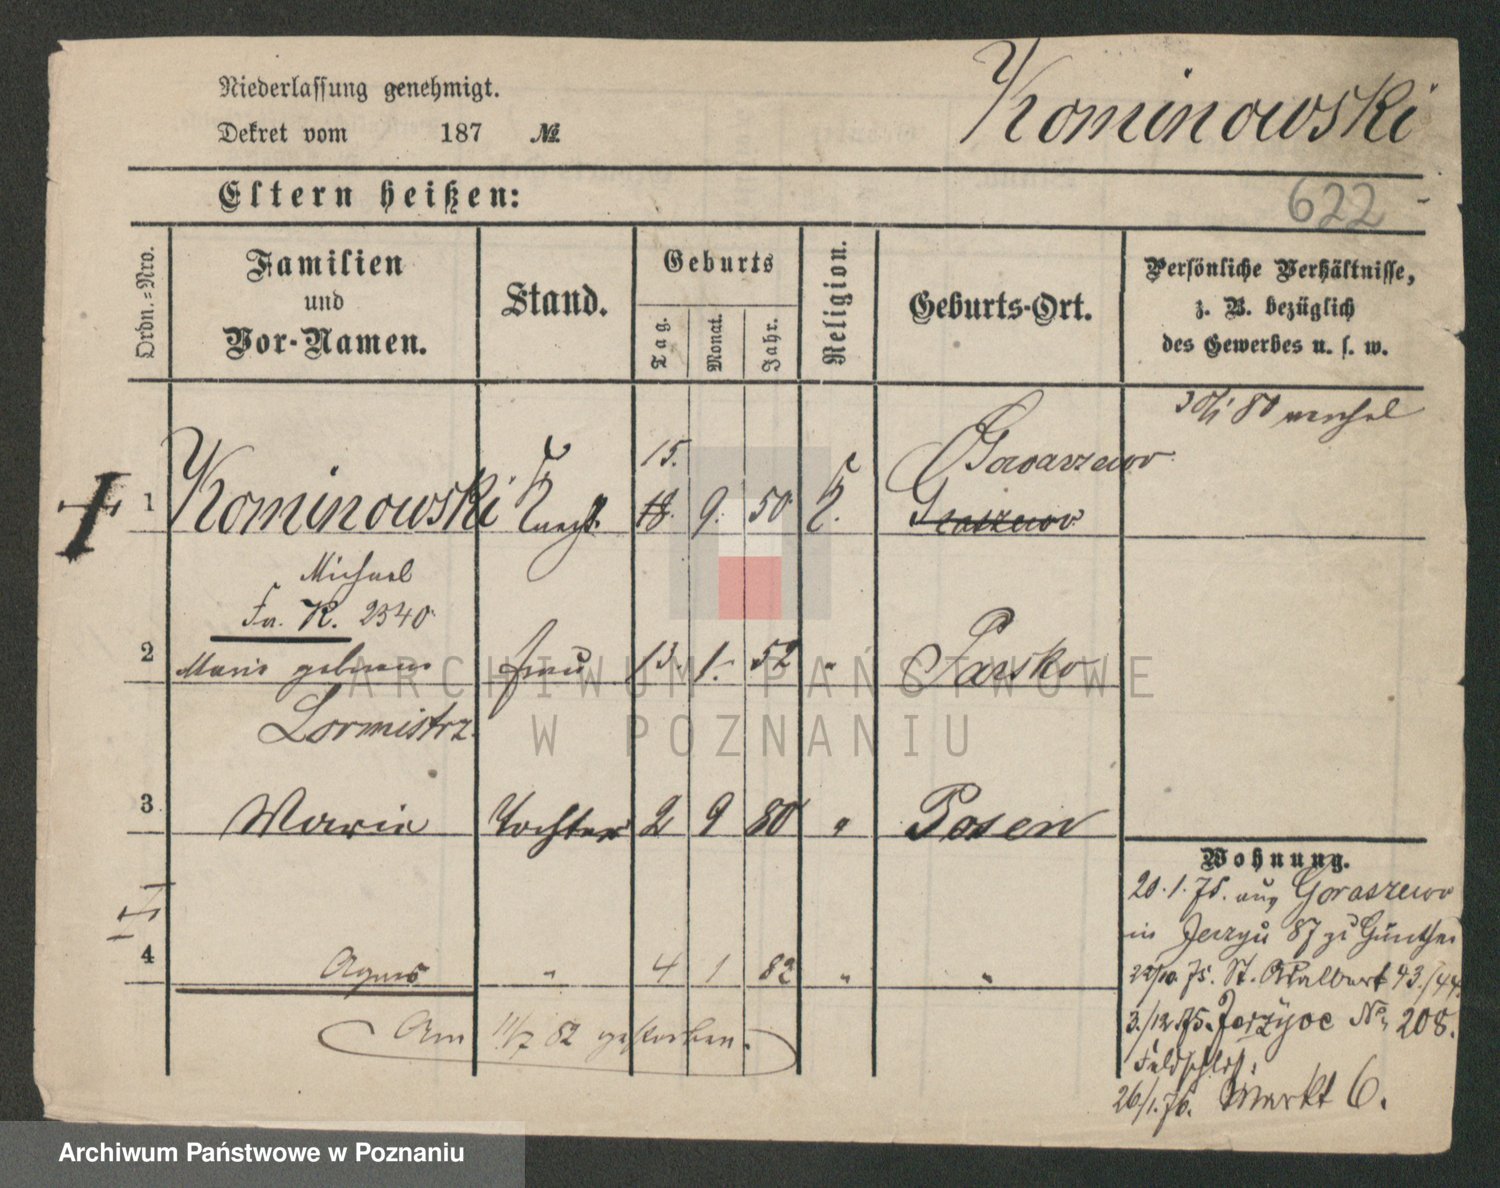 Niederlassung genehmigt.
Dekret vom 187 №
Kominowski
Eltern heißen:
622
Ordn.=Nro.
Familien und Vor-Namen.
Stand.
Geburts
Tag.
Monat.
Jahr.
Religion.
Geburts-Ort.
Persönliche Verhältnisse,
z. B. bezüglich
des Gewerbes u. s. w.
15.
1 Kominowski Knecht 18. 9. 50 K.
Michael
Fa. K. 2340
2 Marie geborene Frau 13. 1. 52 " Parsko
Lormistrz
3 Marie Tochter 2 9 80 " Posen
4 Agnes " 4 1 82 " "
Am 11/7 82 gestorben.
Wohnung.
20.1.75. aus Goraszewo
in Jerzyce 87 zu Günther
22/10. 75. St. Adalbert 43./44.
3./12.75. Jerzyce No. 208.
Feldschloß:
26/1.76. Markt 6.
ARCHIWUM PAŃSTWOWE
W POZNANIU
Archiwum Państwowe w Poznaniu